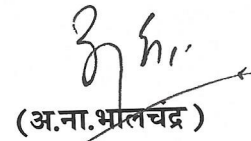 (अ.ना.भालचंद्र )